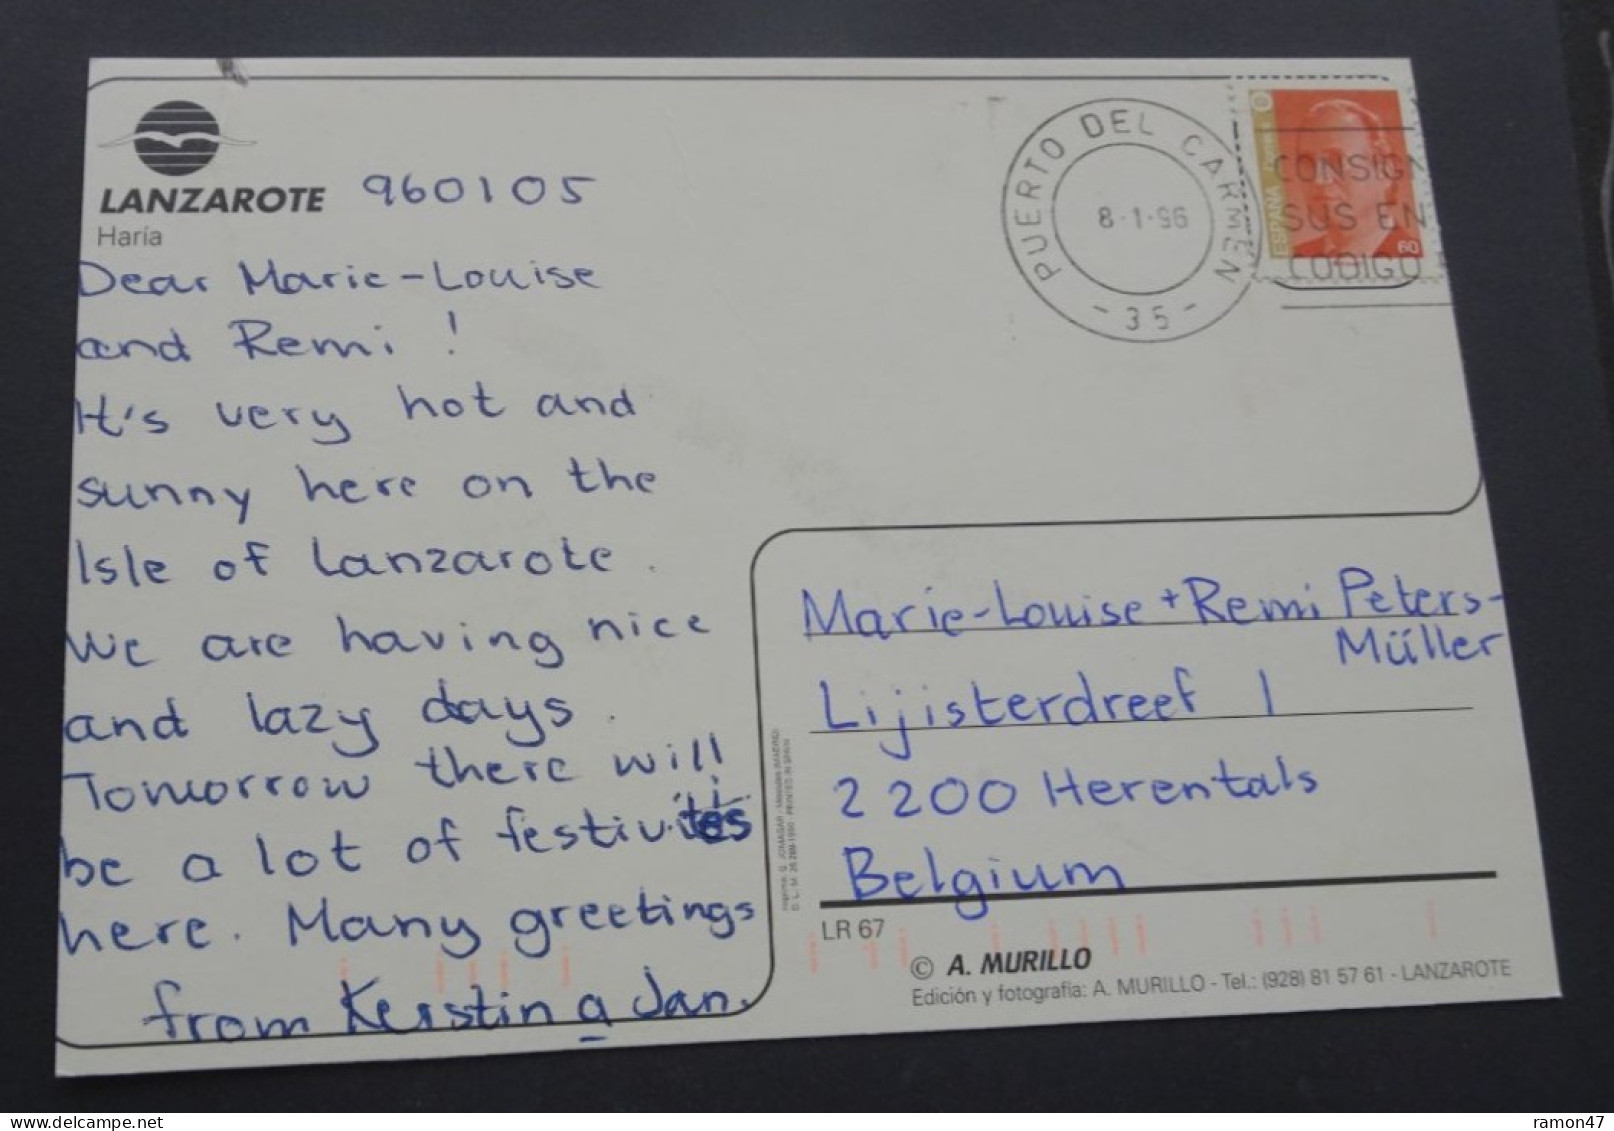 LANZAROTE
Haría
960105
Dear Marie-Louise
and Remi!
It's very hot and
sunny here on the
Isle of Lanzarote.
We are having nice
and lazy days.
Tomorrow there will
be a lot of festivities
here. Many greetings
from Kerstin a Jan.
PUERTO DEL CARMEN
8-1-96
- 35 -
ESPAÑA
60
CONSIGN
SUS EN
CODIGO
Marie-Louise + Remi Peters-
Müller
Lijisterdreef 1
2200 Herentals
Belgium
LR 67
© A. MURILLO
Edición y fotografía: A. MURILLO - Tel.: (928) 81 57 61 - LANZAROTE
ramon47